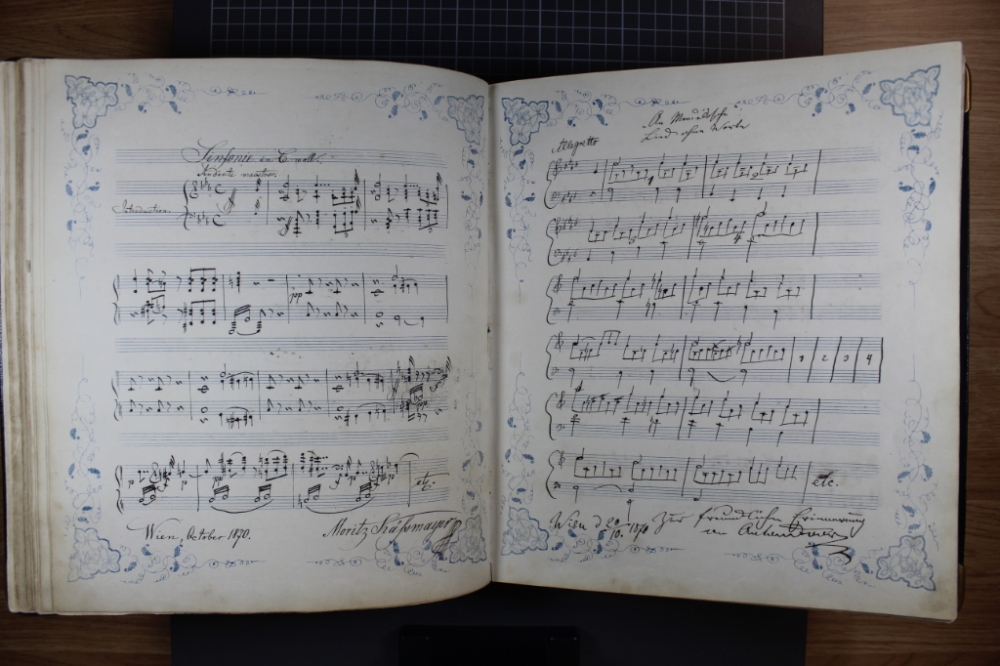 Sinfonie in C moll.
Andante maestoso.
Introduction.
pp
etc.
Wien, October 1870.
Moritz Käßmayer
Lied ohne Worte
Allegretto
1 2 3 4
etc.
Wien d 29/10. 1870 Zur freundlichen Erinnerung
an